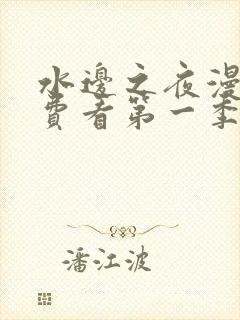 水邊之夜漫
費看第一季
潘江波